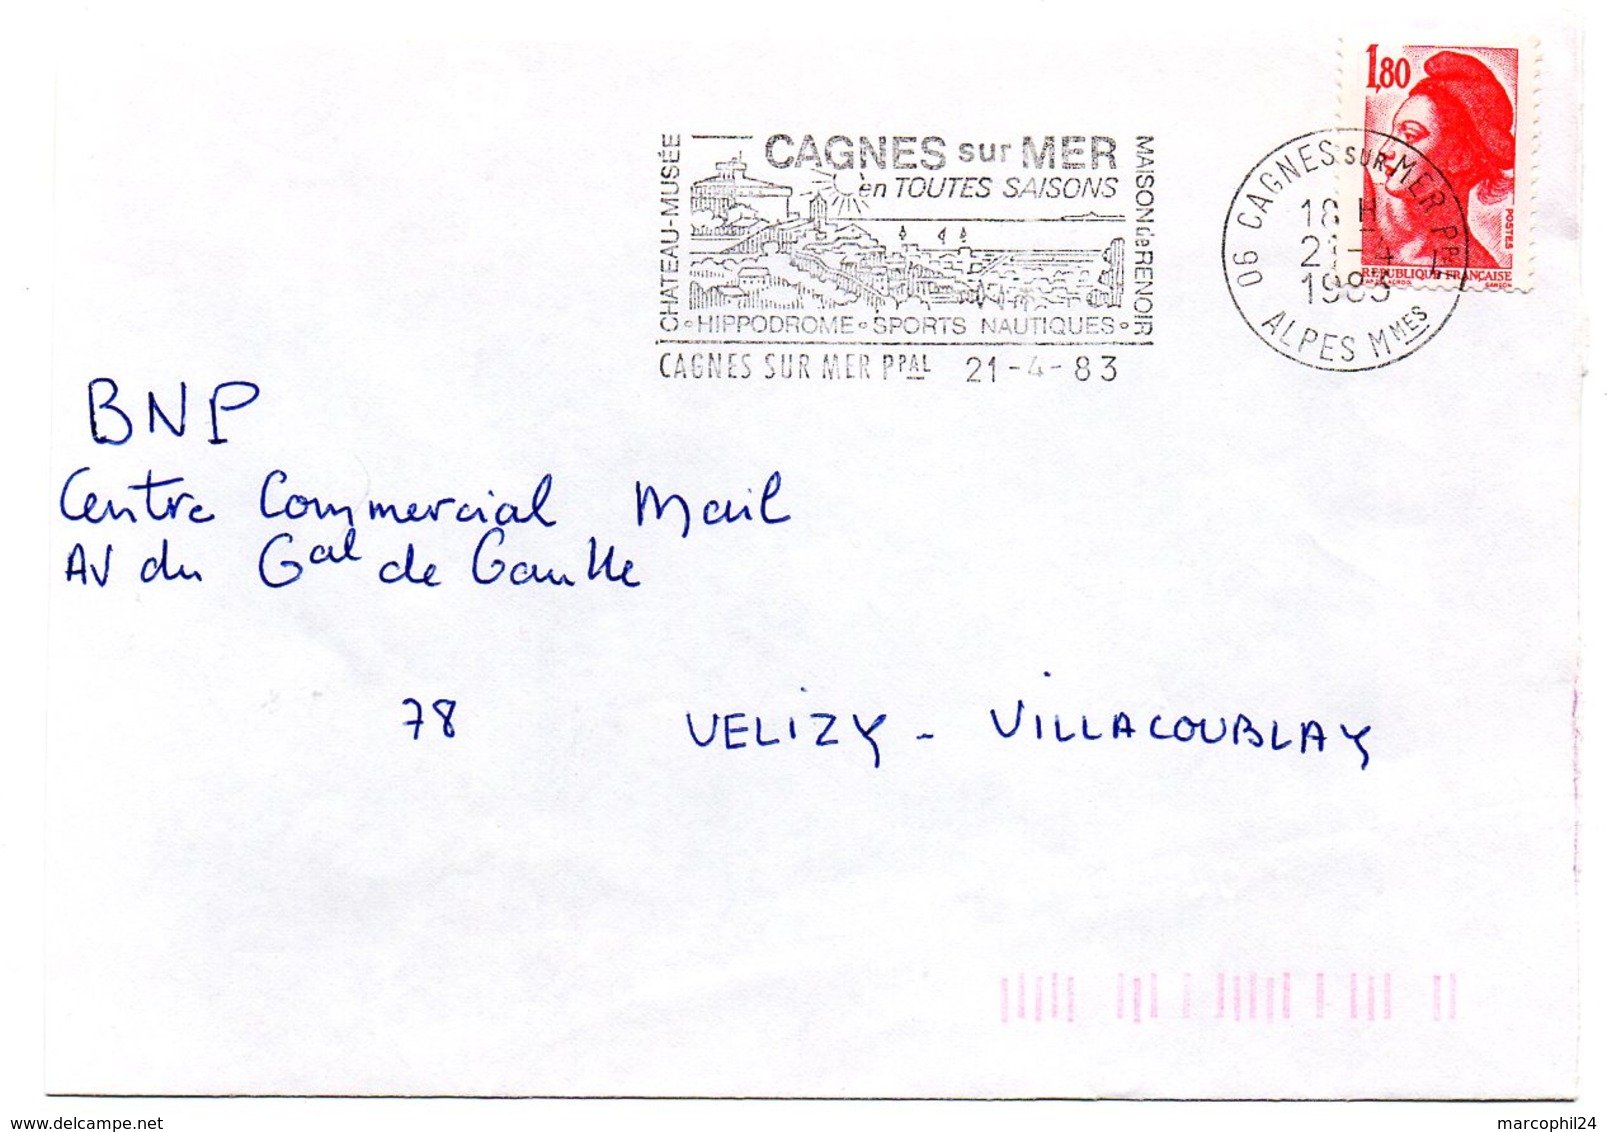 1,80
POSTES
REPUBLIQUE FRANÇAISE
GANDON
CHATEAU-MUSÉE
CAGNES sur MER
en TOUTES SAISONS
MAISON de RENOIR
HIPPODROME SPORTS NAUTIQUES
CAGNES SUR MER PPAL 21-4-83
06 CAGNES SUR MER PPAL
18 H
21-4
1983
ALPES MMES
BNP
Centre Commercial Mail
AV du Gal de Gaulle
78 VELIZY - VILLACOUBLAY
marcophil24